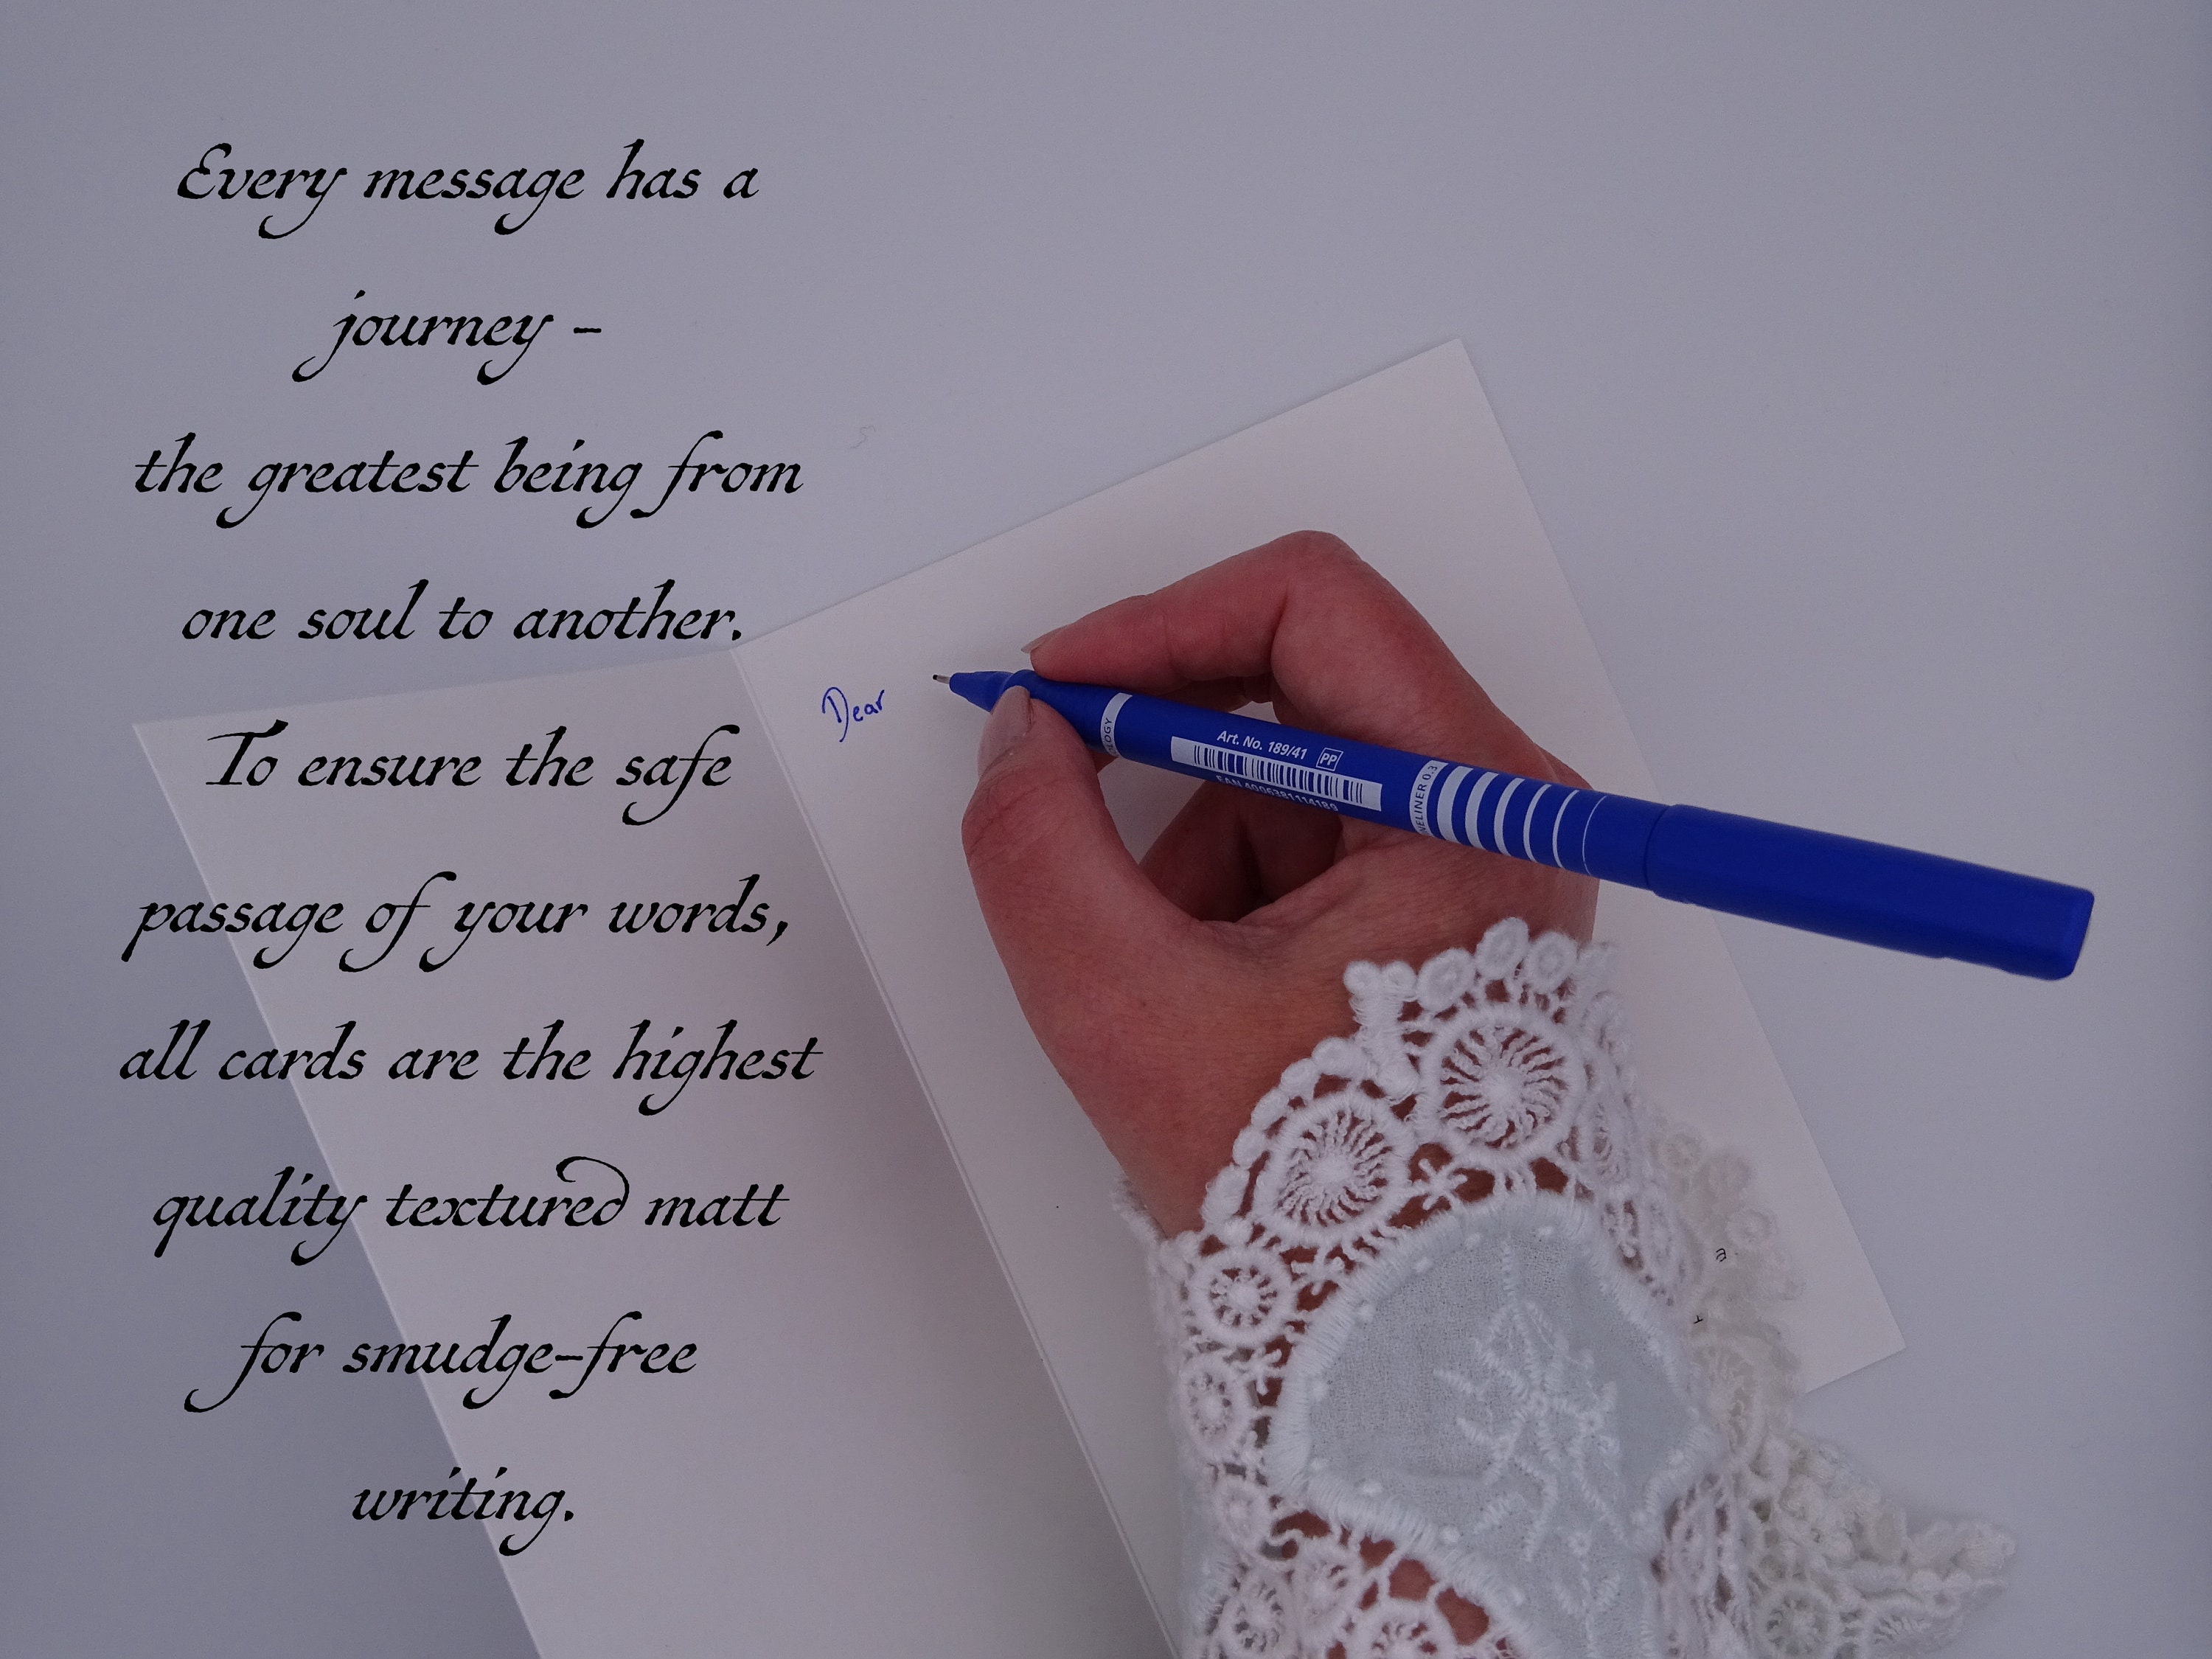 Every message has a
journey -
the greatest being from
one soul to another.
To ensure the safe
passage of your words,
all cards are the highest
quality textured matt
for smudge-free
writing.
Dear
Art. No. 189/41 PP
EAN 4006381114189